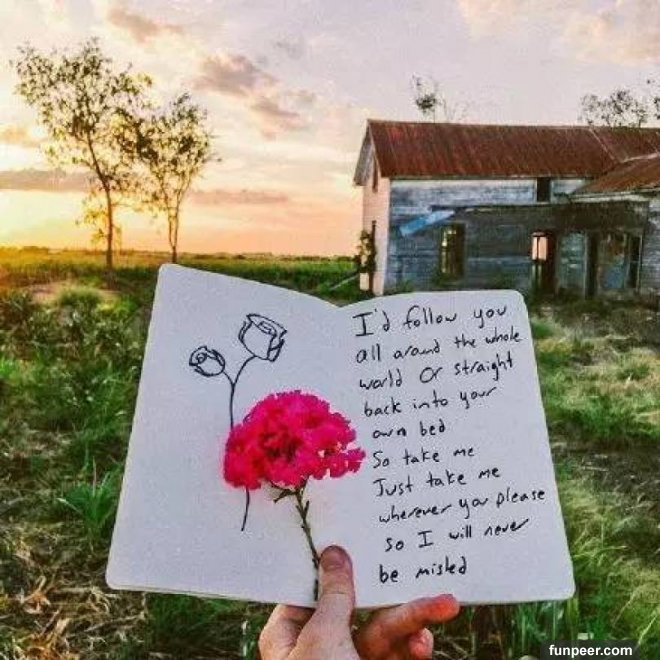 I'd follow you
all around the whole
world Or straight
back into your
own bed
So take me
Just take me
wherever you please
so I will never
be misled
funpeer.com